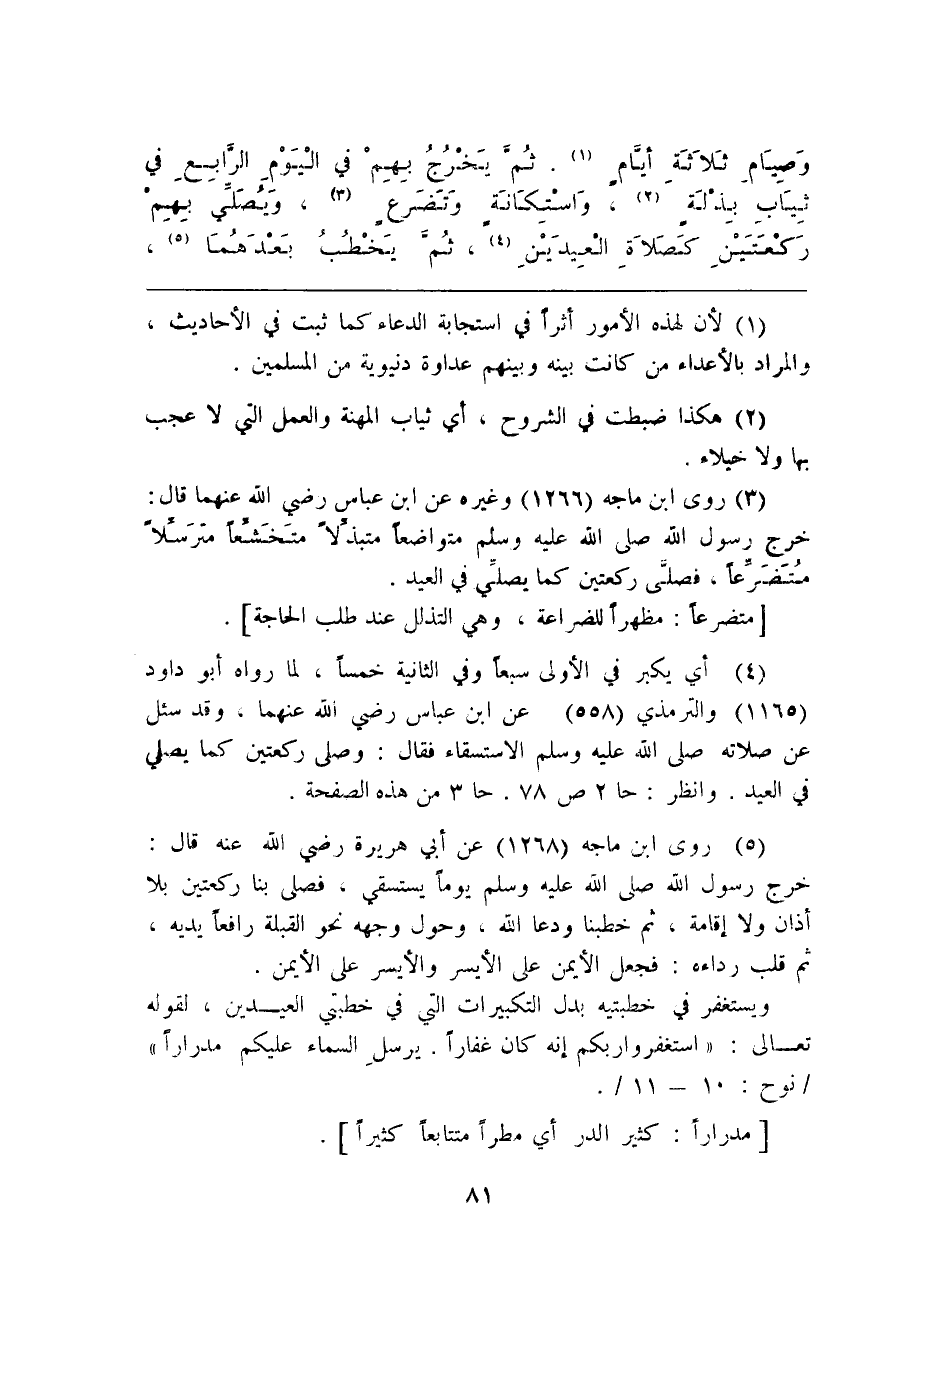 وَصِيَامِ ثَلاَثَةِ أَيَّامٍ (١) . ثُمَّ يَخْرُجُ بِهِمْ في الْيَوْمِ الرَّابِعِ في
ثِيَابِ بِذْلَةٍ (٢) ، وَاسْتِكَانَةٍ وَتَضَرعٍ (٣) ، وَيُصَلِّي بِهِمْ
رَكْعَتَيْنِ كَصَلاَةِ الْعِيدَيْنِ (٤) ، ثُمَّ يَخْطُبُ بَعْدَهُمَا (٥) ،
(١) لأن لهذه الأمور أثراً في استجابة الدعاء كما ثبت في الأحاديث ،
والمراد بالأعداء من كانت بينه وبينهم عداوة دنيوية من المسلمين .
(٢) هكذا ضبطت في الشروح ، أي ثياب المهنة والعمل التي لا عجب
بها ولا خيلاء .
(٣) روى ابن ماجه (١٢٦٦) وغيره عن ابن عباس رضي الله عنهما قال :
خرج رسول الله صلى الله عليه وسلم متواضعاً متبذِّلاً مَتَخَشِّعاً مَتَرَسِّلاً
مُتَضَرِّعاً ، فصلَّى ركعتين كما يصلِّي في العيد .
[ متضرعاً : مظهراً للضراعة ، وهي التذلل عند طلب الحاجة ] .
(٤) أي يكبر في الأولى سبعاً وفي الثانية خمساً ، لما رواه أبو داود
(١١٦٥) والترمذي (٥٥٨) عن ابن عباس رضي الله عنهما ، وقد سئل
عن صلاته صلى الله عليه وسلم الاستسقاء فقال : وصلى ركعتين كما يصلي
في العيد . وانظر : حا ٢ ص ٧٨ . حا ٣ من هذه الصفحة .
(٥) روى ابن ماجه (١٢٦٨) عن أبي هريرة رضي الله عنه قال :
خرج رسول الله صلى الله عليه وسلم يوماً يستسقي ، فصلى بنا ركعتين بلا
أذان ولا إقامة ، ثم خطبنا ودعا الله ، وحول وجهه نحو القبلة رافعاً يديه ،
ثم قلب رداءه : فجعل الأيمن على الأيسر والأيسر على الأيمن .
ويستغفر في خطبتيه بدل التكبيرات التي في خطبتي العيـــدين ، لقوله
تعـــالى : « استغفروا ربكم إنه كان غفاراً . يرسلِ السماء عليكم مدراراً »
/ نوح : ١٠ – ١١ / .
[ مدراراً : كثير الدر أي مطراً متتابعاً كثيراً ] .
٨١